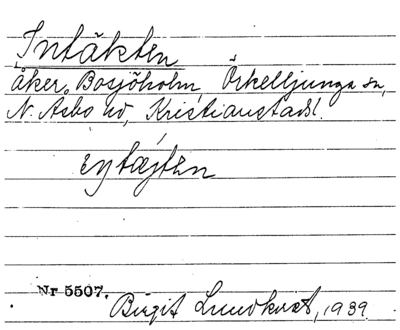 Intäkten
åker, Bosjöholm, Örkelljunga sn,
N. Åsbo hd, Kristianstads l.
Nr 5507.
Birgit Lundkvist, 1939